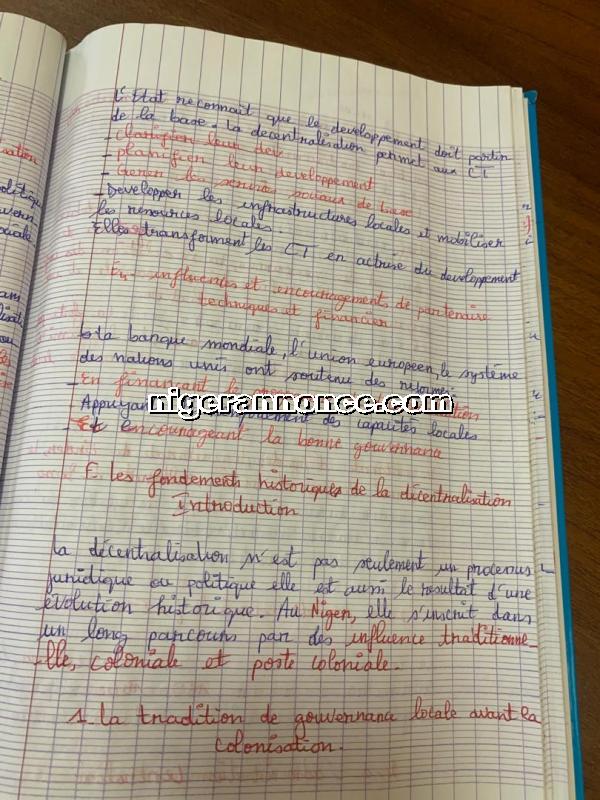 L'Etat reconnait que le developpement doit partir
de la base. La decentralisation permet aux CT
- planifier leur developpement
- Gerer les services sociaux de base
- Developper les infrastructures locales et mobiliser
les ressources locales.
Elles transforment les CT en actrise du developpement
influences et encouragements de partenaire
techniques et financier
La banque mondiale, l'union europeen, le système
des nations unis ont soutenu des reformes
- En finançant le
Appuyant des capacités locales
nigerannonce.com
- Et encourageant la bonne gouvernance
E. les fondements historiques de la décentralisation
Introduction
La décentralisation n'est pas seulement un processus
juridique ou politique elle est aussi le résultat d'une
évolution historique. Au Niger, elle s'inscrit dans
un long parcours par des influence traditionne-
lle, coloniale et poste coloniale.
1. la tradition de gouvernance locale avant la
colonisation.